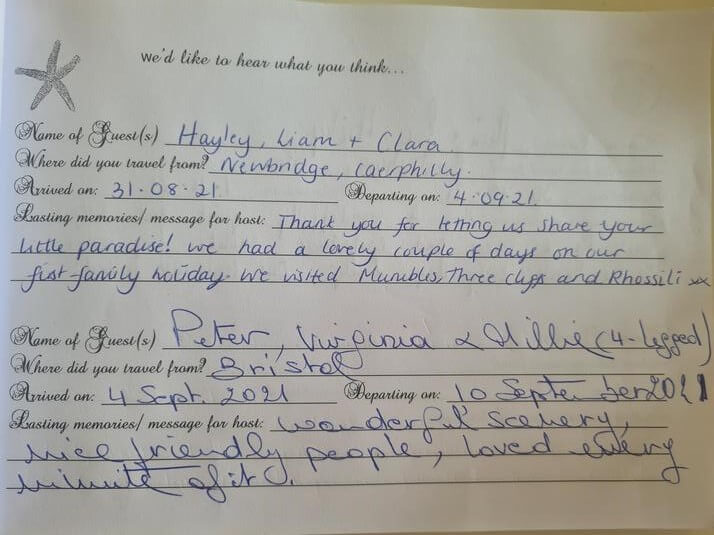 we'd like to hear what you think...
Name of Guest(s) Hayley, Liam + Clara
Where did you travel from? Newbridge, Caerphilly.
Arrived on: 31.08.21 Departing on: 4.09.21
Lasting memories/ message for host: Thank you for letting us share your
little paradise! We had a lovely couple of days on our
first family holiday. We visited Mumbles, Three cliffs and Rhossili xx
Name of Guest(s) Peter, Virginia & Millie (4-legged)
Where did you travel from? Bristol
Arrived on: 4 Sept. 2021 Departing on: 10 September 2021
Lasting memories/ message for host: wonderful scenery,
nice friendly people, loved every
minute of it.